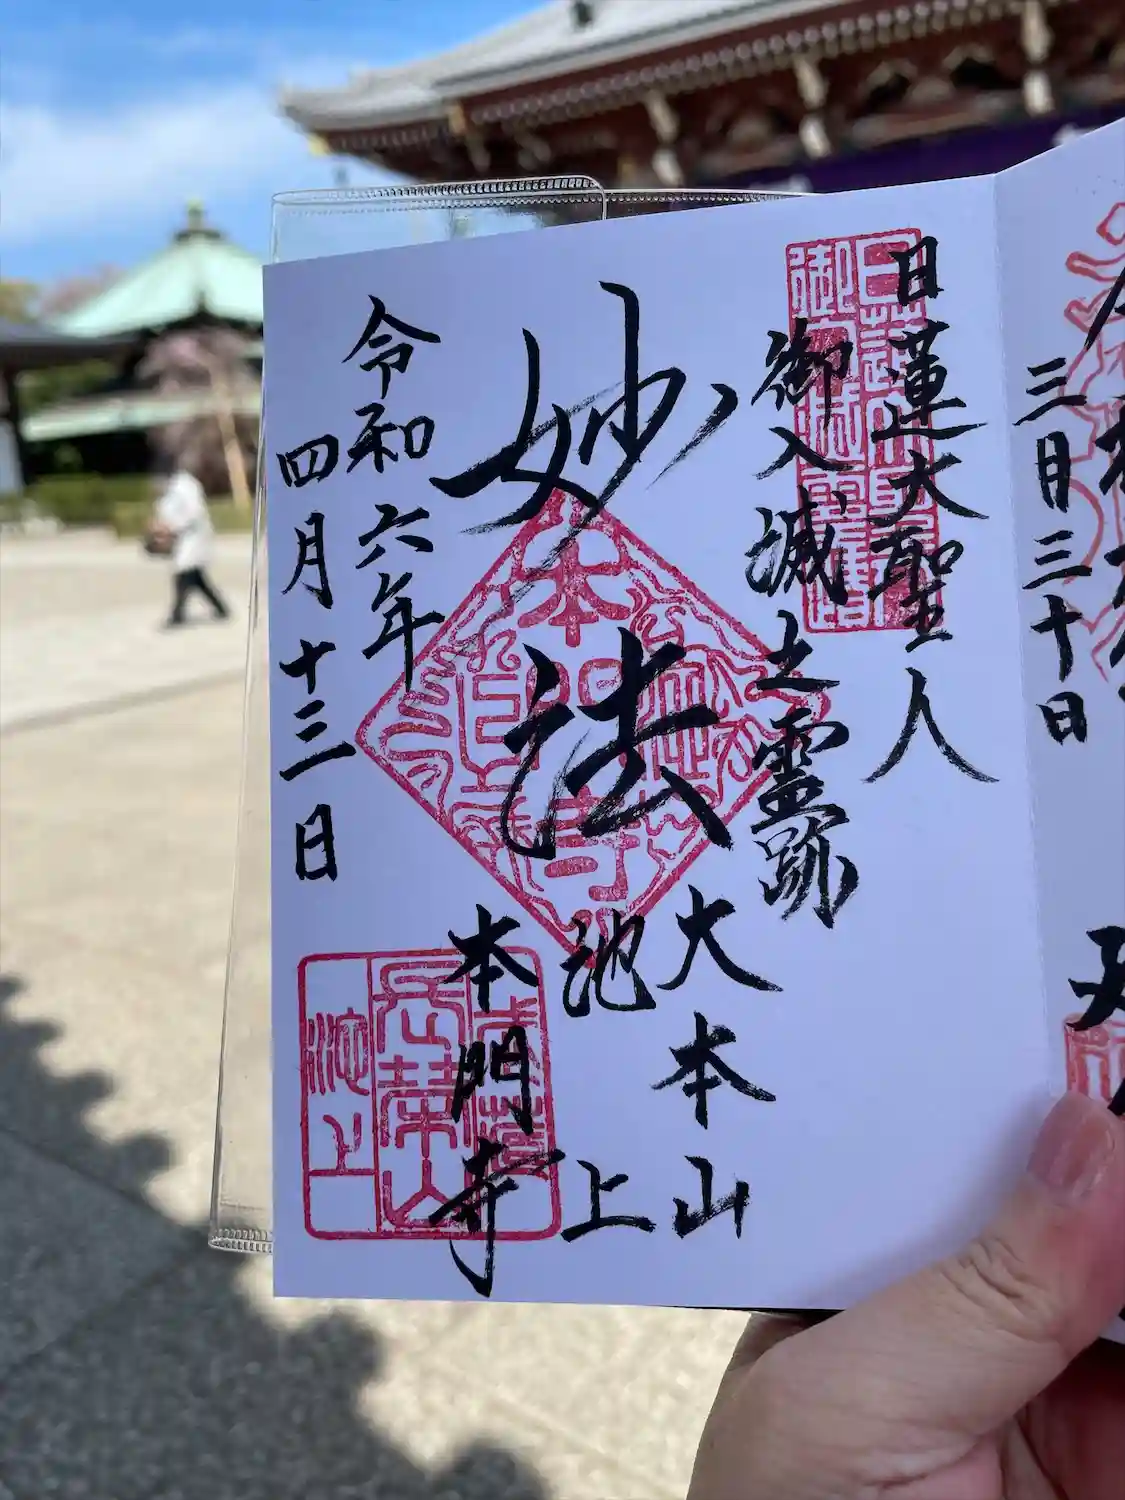 三月三十日
日蓮大聖人
御入滅之霊跡
妙法
大本山
池上
本門寺
令和六年
四月十三日
本門寺
池上